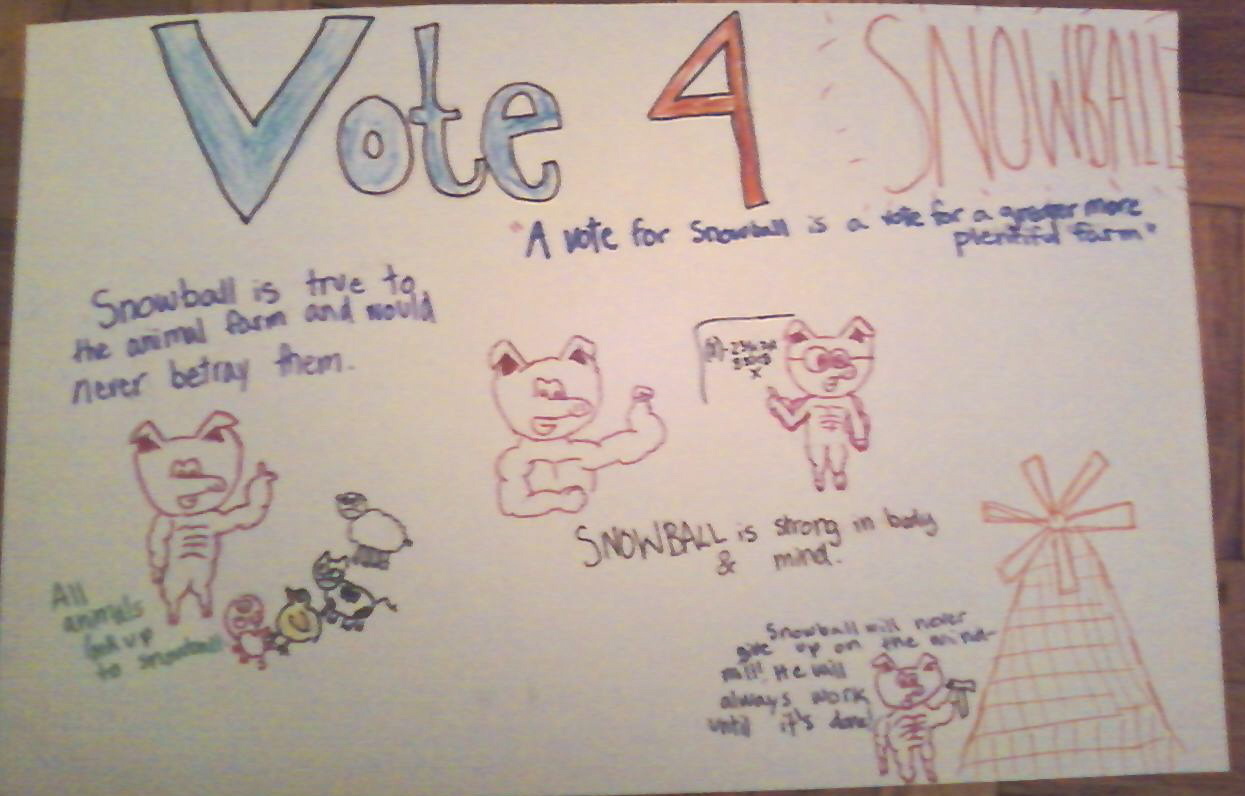 Vote 4 SNOWBALL
"A vote for Snowball is a vote for a greater more
plentiful farm"
Snowball is true to
the animal farm and would
never betray them.
SNOWBALL is strong in body
& mind.
All
animals
look up
to snowball
Snowball will never
give up on the wind-
mill! He will
always work
until it's done!